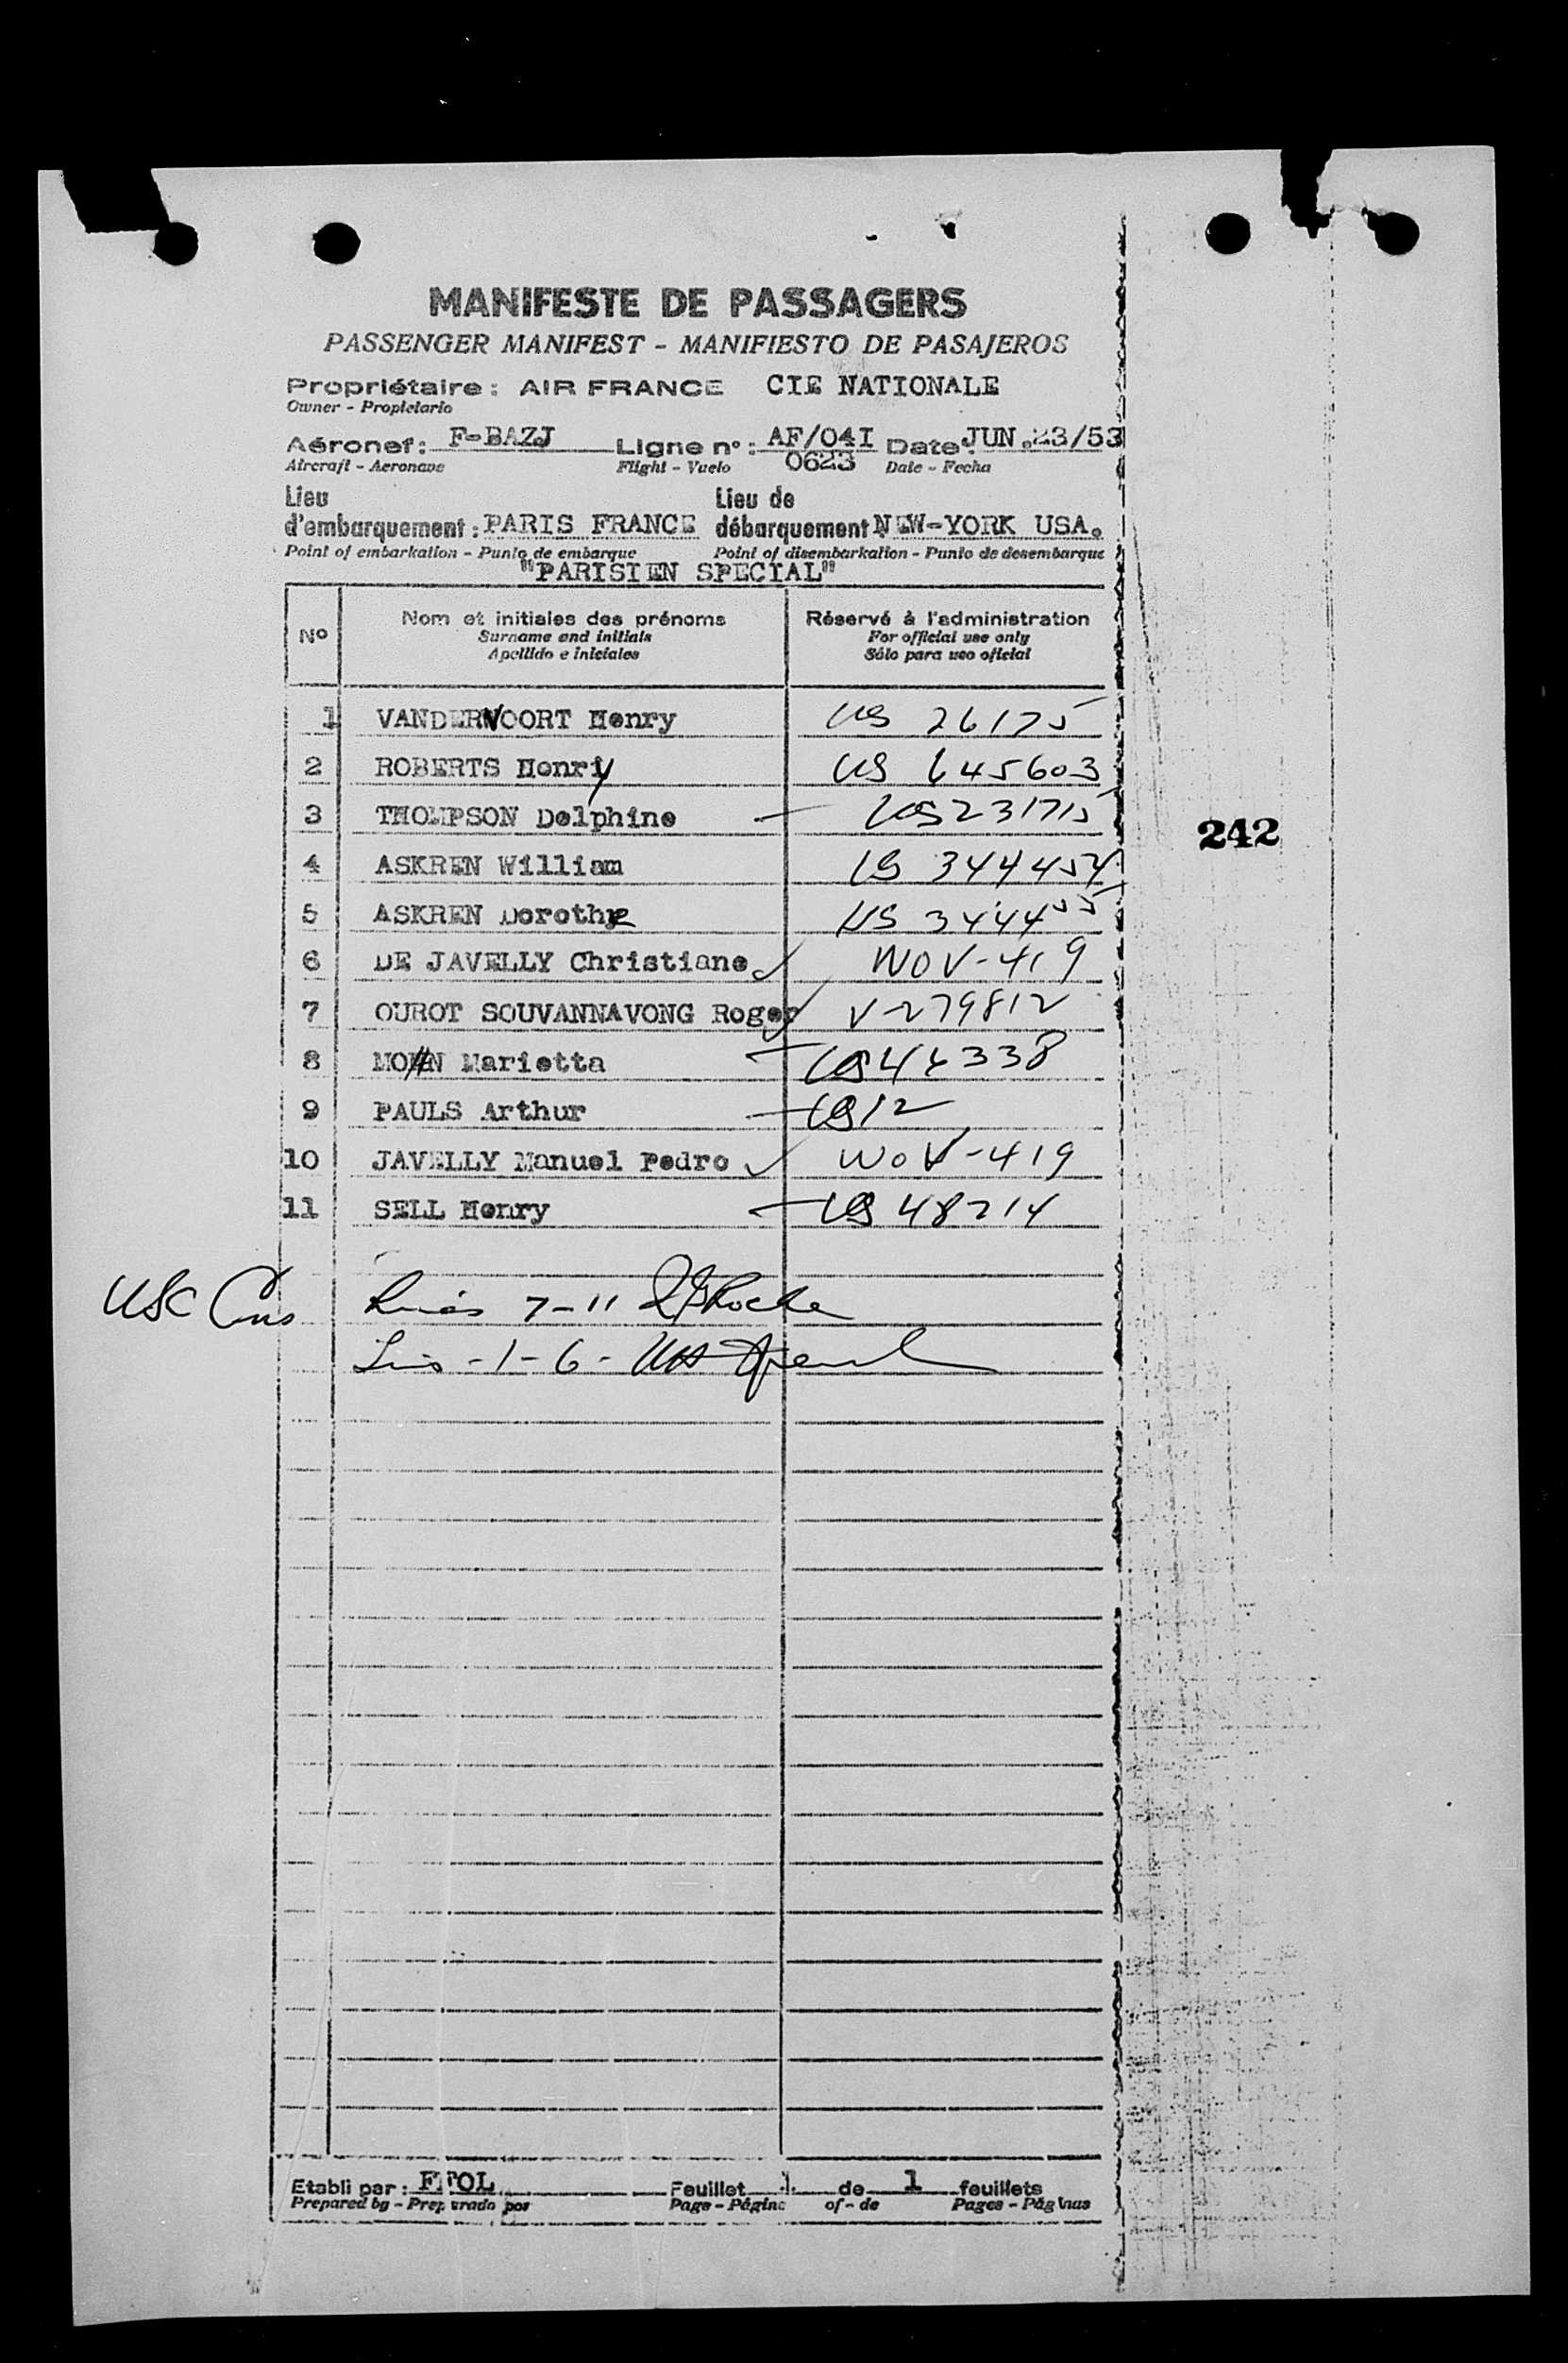 MANIFESTE DE PASSAGERS
PASSENGER MANIFEST - MANIFIESTO DE PASAJEROS
Propriétaire : AIR FRANCE CIE NATIONALE
Owner - Propietario
Aéronef : F-BAZJ Ligne n° : AF/04I Date : JUN.23/53
Aircraft - Aeronave Flight - Vuelo 0623 Date - Fecha
Lieu Lieu de
d'embarquement : PARIS FRANCE débarquement NEW-YORK USA.
Point of embarkation - Punto de embarque Point of disembarkation - Punto de desembarque
"PARISIEN SPECIAL"
N° Nom et initiales des prénoms Réservé à l'administration
Surname and initials For official use only
Apellido e iniciales Sólo para uso oficial
1 VANDERVOORT Henry US 26175
2 ROBERTS Henry US 645603
3 THOMPSON Delphine — US 231715
4 ASKREN William US 344454
5 ASKREN Dorothy US 344455
6 DE JAVELLY Christiane ✓ WOV-419
7 OUROT SOUVANNAVONG Roger ✓ V-279812
8 MOHN Marietta — US 46338
9 PAULS Arthur — US 12
10 JAVELLY Manuel Pedro ✓ WOV-419
11 SELL Henry — US 48214
USC 7-11
-1-6-
242
Etabli par : Feuillet 1 de 1 feuillets
Prepared by - Preparado por Page - Página of - de Pages - Páginas